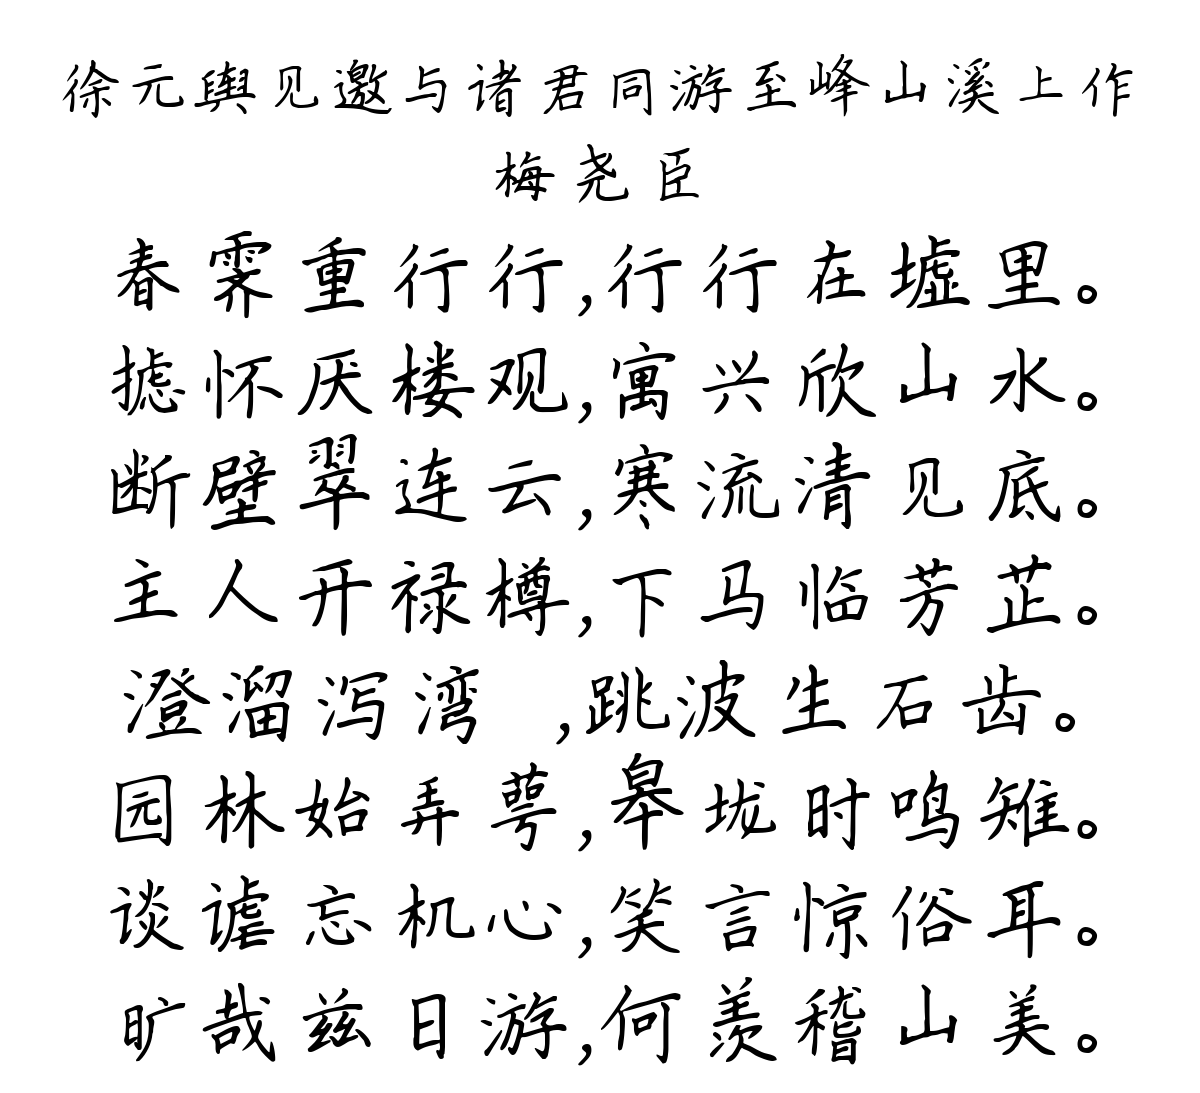 徐元舆见邀与诸君同游至峰山溪上作
梅尧臣
春霁重行行,行行在墟里。
摅怀厌楼观,寓兴欣山水。
断壁翠连云,寒流清见底。
主人开禄樽,下马临芳芷。
澄溜泻湾 ,跳波生石齿。
园林始弄萼,皋垅时鸣雉。
谈谑忘机心,笑言惊俗耳。
旷哉兹日游,何羡稽山美。